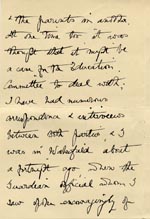 & the parents in another.
At one time too it was
thought that it might be
a case for the Education
Committee to deal with.
I have had numerous
correspondence & interviews
between both parties & I
was in Wakefield about
a fortnight ago when the
Guardian official whom I
saw spoke encouragingly of